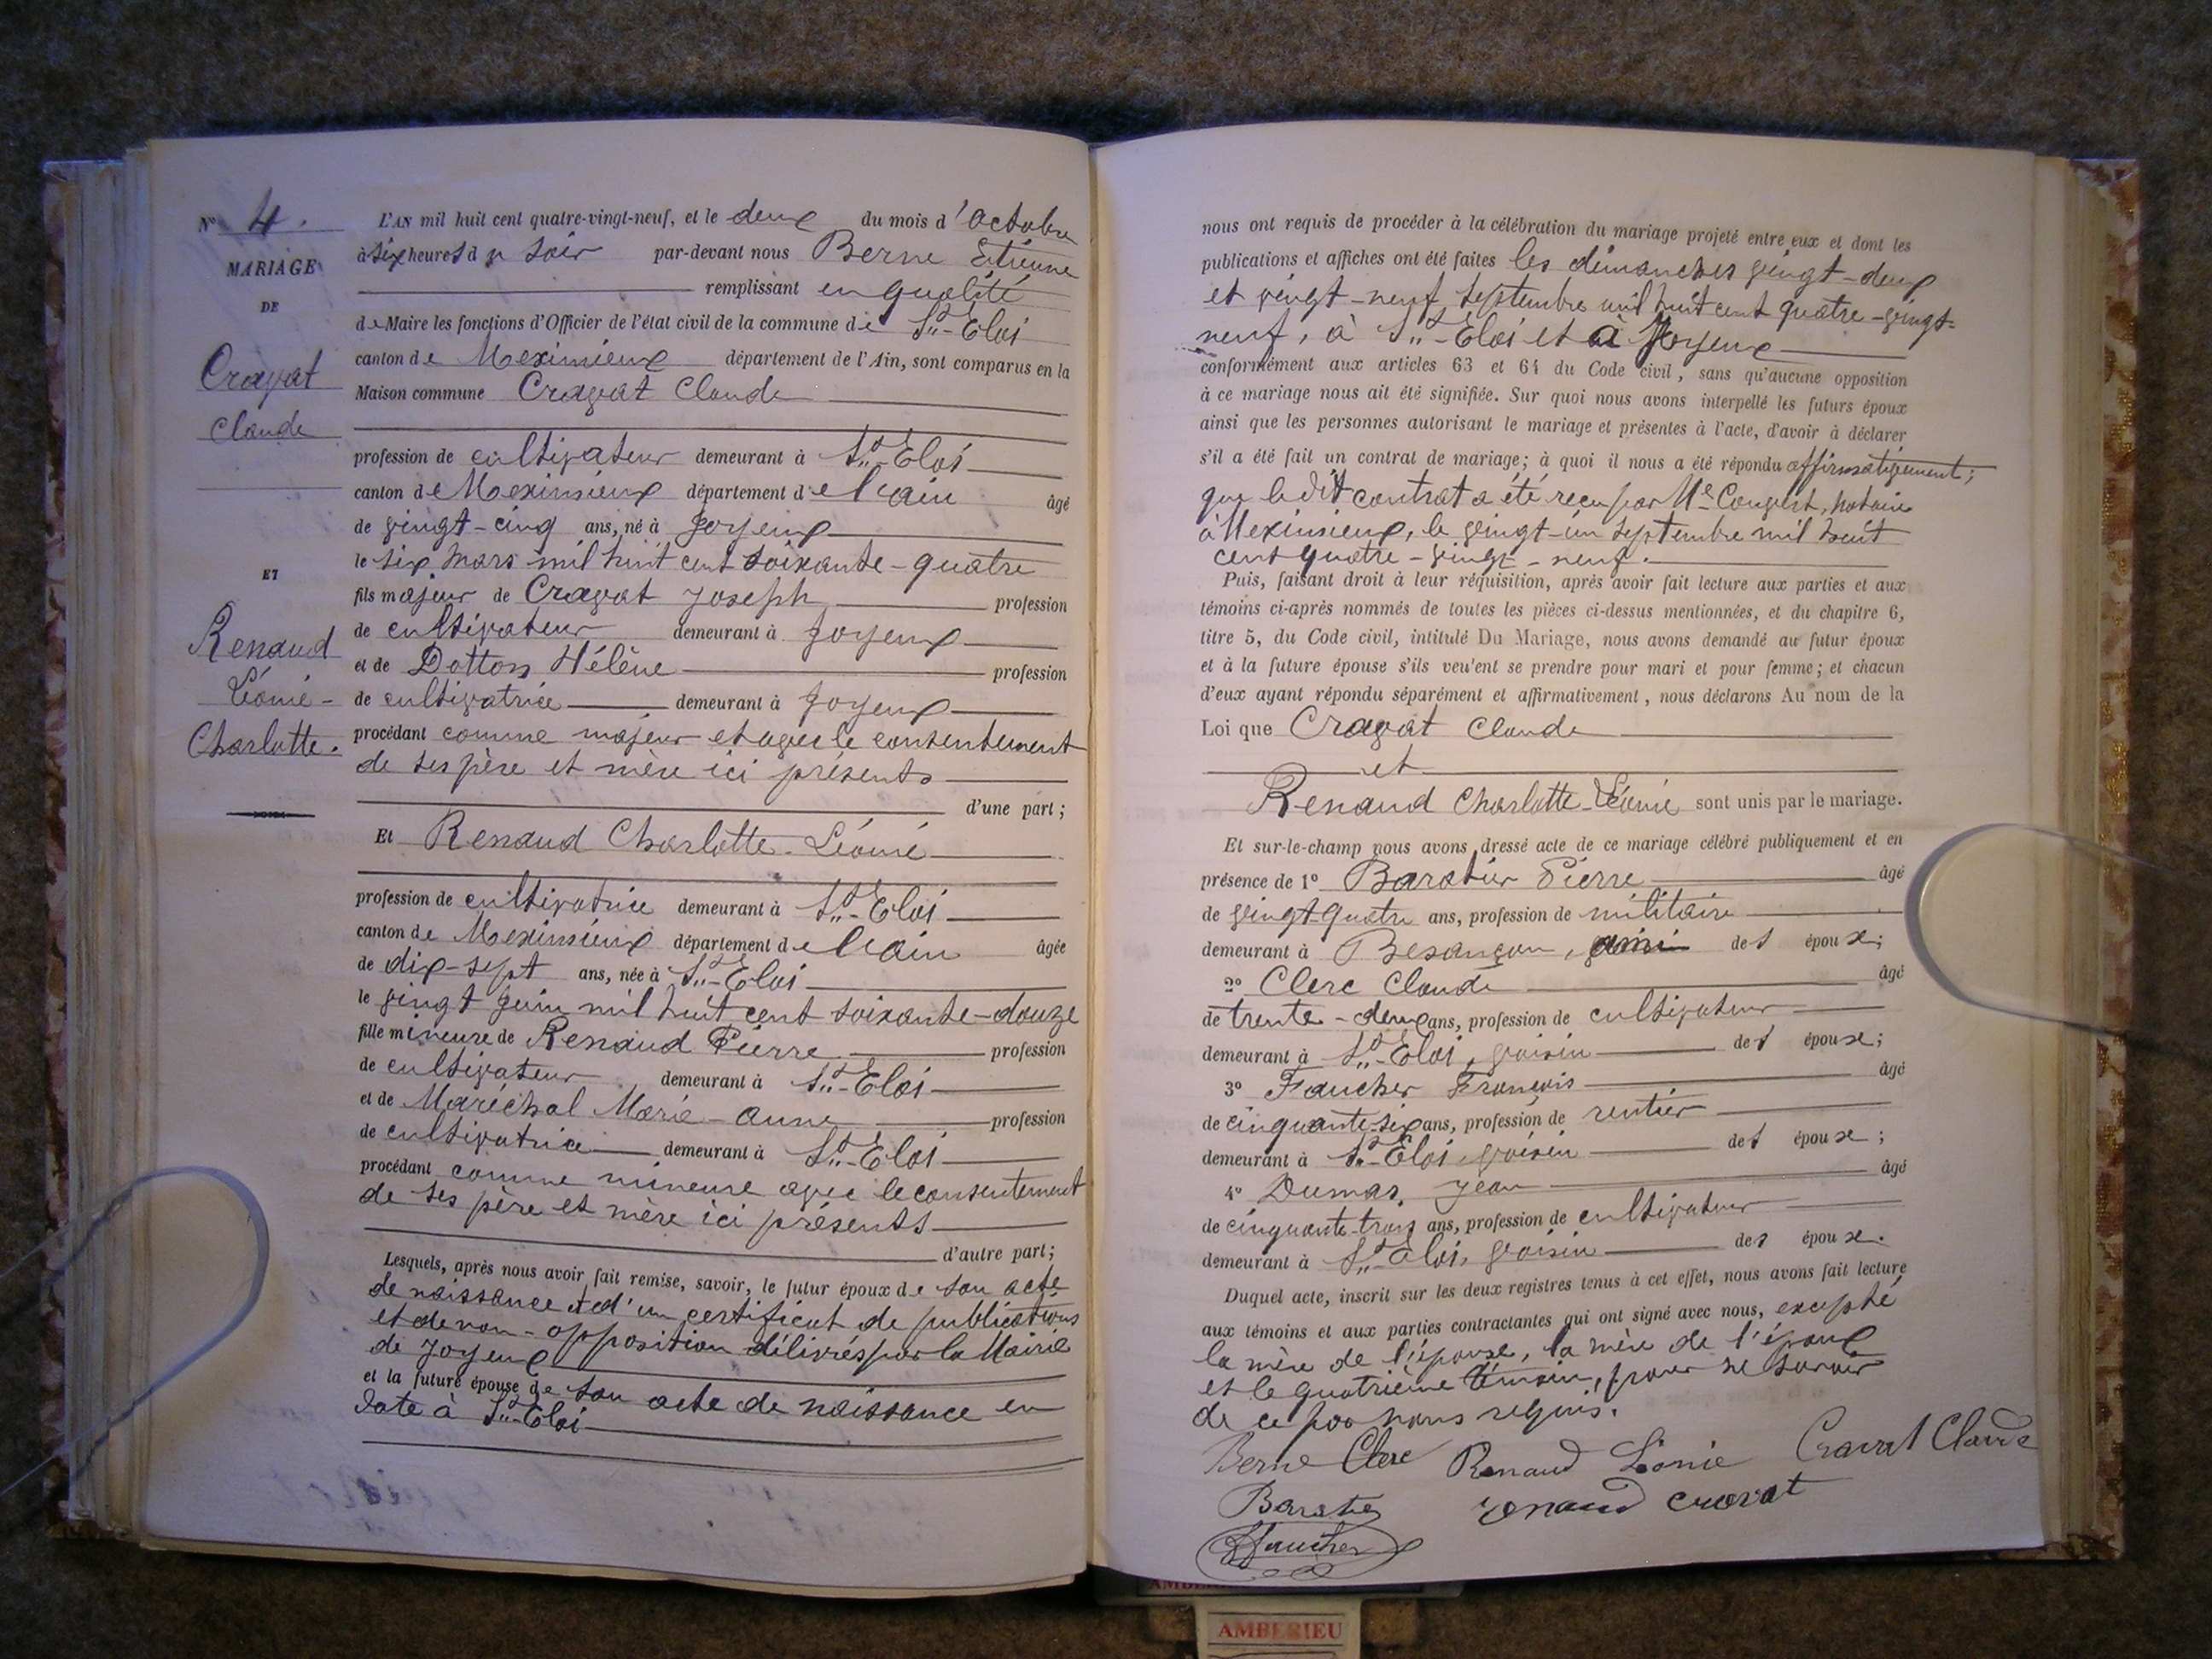 N° 4.
MARIAGE
DE
Cravat
Claude
ET
Renaud
Léonie-
Charlotte.
L'AN mil huit cent quatre-vingt-neuf, et le deux du mois d'octobre
à six heures du soir par-devant nous Berne Etienne
remplissant en qualité
de Maire les fonctions d'Officier de l'état civil de la commune de St-Eloi
canton de Meximieux département de l'Ain, sont comparus en la
Maison commune Cravat Claude
profession de cultivateur demeurant à St-Eloi
canton de Meximieux département de l'ain âgé
de vingt-cinq ans, né à Joyeux
le six mars mil huit cent soixante-quatre
fils majeur de Cravat Joseph profession
de cultivateur demeurant à Joyeux
et de Dotton Hélène profession
de cultivatrice demeurant à Joyeux
procédant comme majeur et avec le consentement
de ses père et mère ici présents
d'une part;
Et Renaud Charlotte-Léonie
profession de cultivatrice demeurant à St-Eloi
canton de Meximieux département de l'ain âgée
de dix-sept ans, née à St-Eloi
le vingt juin mil huit cent soixante-douze
fille mineure de Renaud Pierre profession
de cultivateur demeurant à St-Eloi
et de Maréchal Marie-anne profession
de cultivatrice demeurant à St-Eloi
procédant comme mineure avec le consentement
de ses père et mère ici présents
d'autre part;
Lesquels, après nous avoir fait remise, savoir, le futur époux de son acte
de naissance et d'un certificat de publications
et de non-opposition délivrés par la Mairie
de Joyeux
et la future épouse de son acte de naissance en
date à St-Eloi
nous ont requis de procéder à la célébration du mariage projeté entre eux et dont les
publications et affiches ont été faites les dimanches vingt-deux
et vingt-neuf septembre mil huit cent quatre-vingt-
neuf, à St-Eloi et à Joyeux
conformément aux articles 63 et 64 du Code civil, sans qu'aucune opposition
à ce mariage nous ait été signifiée. Sur quoi nous avons interpellé les futurs époux
ainsi que les personnes autorisant le mariage et présentes à l'acte, d'avoir à déclarer
s'il a été fait un contrat de mariage; à quoi il nous a été répondu affirmativement;
que le dit contrat a été reçu par Me notaire
à Meximieux, le vingt-un septembre mil huit
cent quatre-vingt-neuf.
Puis, faisant droit à leur réquisition, après avoir fait lecture aux parties et aux
témoins ci-après nommés de toutes les pièces ci-dessus mentionnées, et du chapitre 6,
titre 5, du Code civil, intitulé Du Mariage, nous avons demandé au futur époux
et à la future épouse s'ils veu'ent se prendre pour mari et pour femme; et chacun
d'eux ayant répondu séparément et affirmativement, nous déclarons Au nom de la
Loi que Cravat Claude
et
Renaud Charlotte-Léonie sont unis par le mariage.
Et sur-le-champ nous avons dressé acte de ce mariage célébré publiquement et en
présence de 1° Baratier Pierre âgé
de vingt-quatre ans, profession de militaire
demeurant à Besançon, ami des époux;
2° Clerc Claude âgé
de trente-deux ans, profession de cultivateur
demeurant à St-Eloi, voisin des époux;
3° Faucher François âgé
de cinquante-six ans, profession de rentier
demeurant à St-Eloi, voisin des époux;
4° Dumas Jean âgé
de cinquante-trois ans, profession de cultivateur
demeurant à St-Eloi, voisin des époux.
Duquel acte, inscrit sur les deux registres tenus à cet effet, nous avons fait lecture
aux témoins et aux parties contractantes qui ont signé avec nous, excepté
la mère de l'épouse, la mère de l'époux
et le quatrième témoin, pour ne savoir
de ce par nous requis.
Berne Clerc Renaud Léonie Cravat Claude
Baratier renaud cravat
Faucher
AMBERIEU